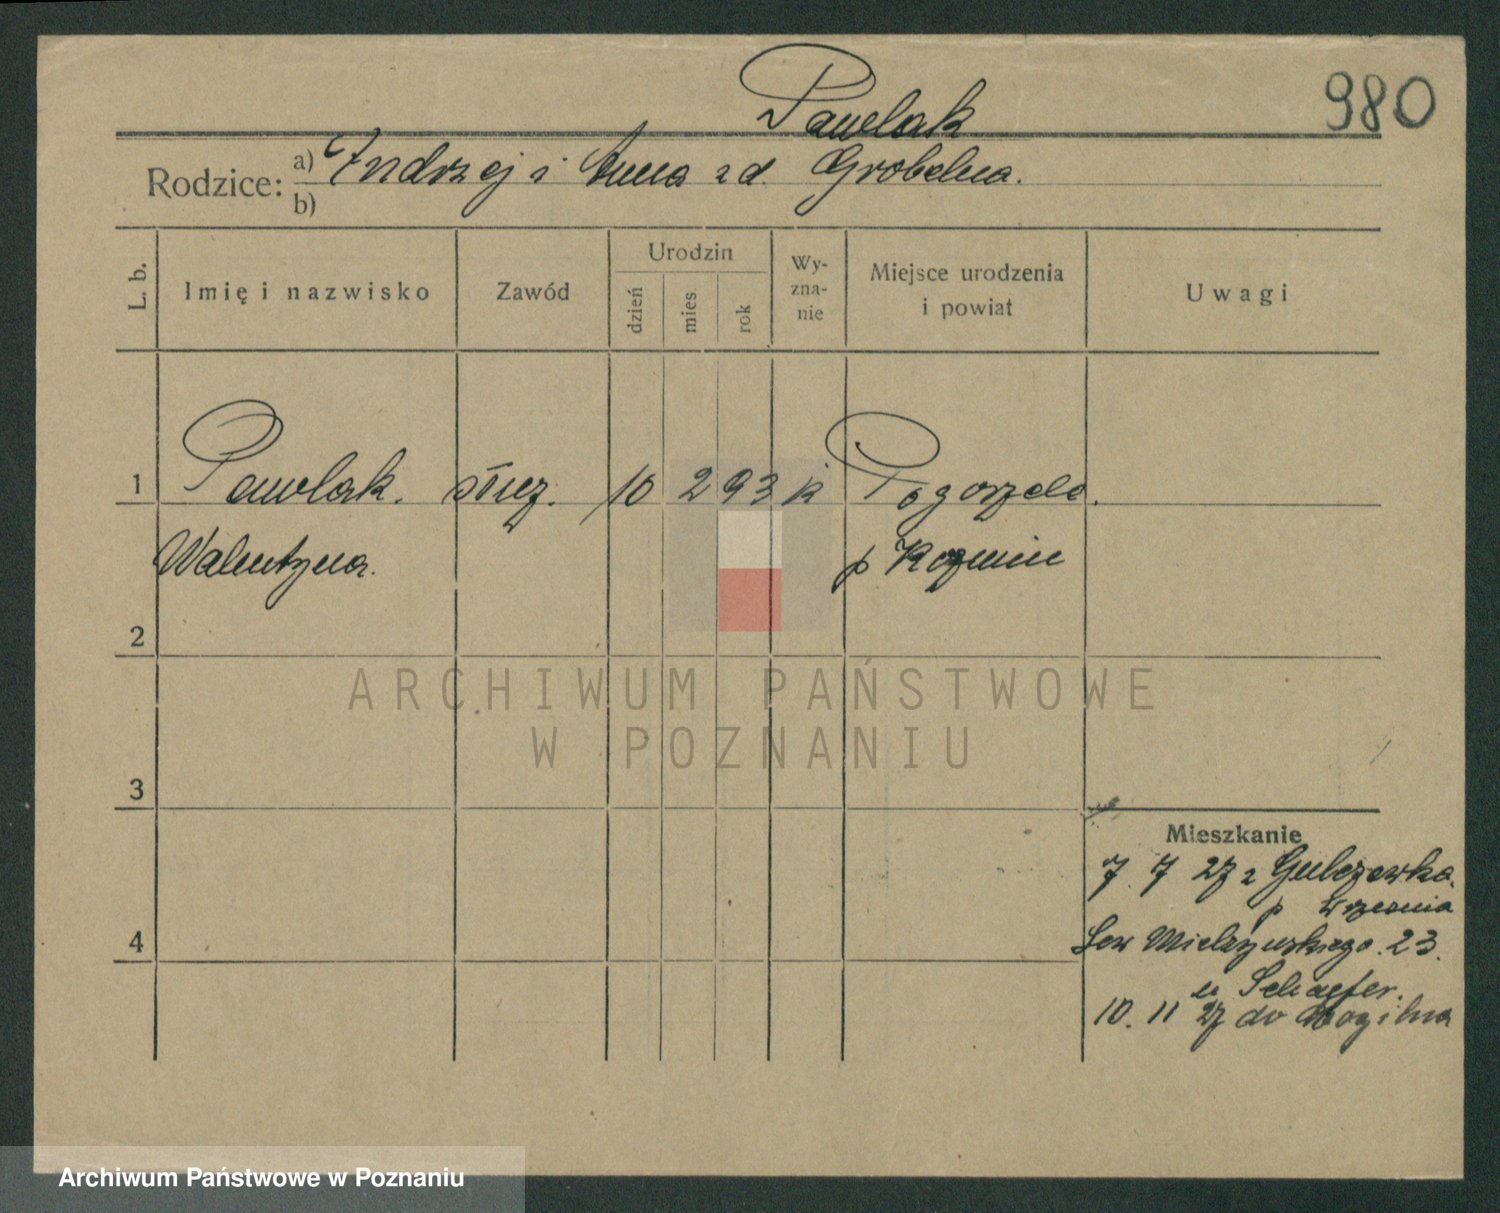 Pawelak
980
Rodzice: a) Andrzej i Anna z d. Grobelna.
b)
L. b.
Imię i nazwisko
Zawód
Urodzin
dzień
mies.
rok
Wy-
zna-
nie
Miejsce urodzenia
i powiat
Uwagi
1 Pawlak. służ. 10 2 93 k Pogorzela.
Walentyna. p Kozmin
2
ARCHIWUM PAŃSTWOWE
W POZNANIU
3
Mieszkanie
7. 7 27 z Gulczewka.
p Wrzesnia
4
Sew Mielzynskiego. 23.
Schaefer.
10. 11 27 do Mogilna
Archiwum Państwowe w Poznaniu